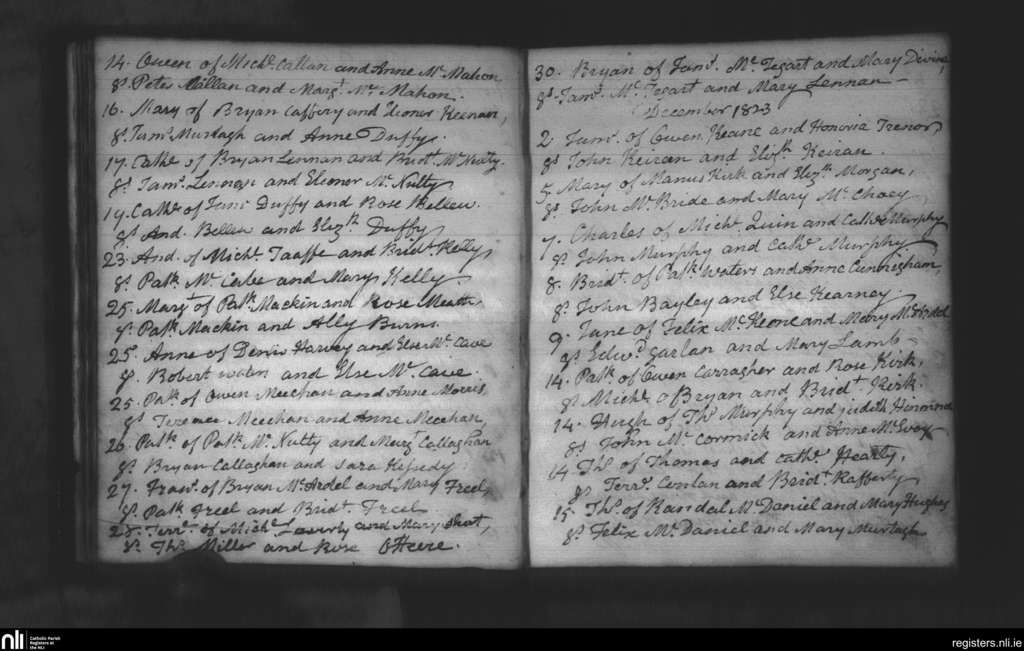 14. Owen of Michl. Callan and Anne Mc. Mahon
Ss Peter Callan and Margt. Mc. Mahon.
16. Mary of Bryan Caffery and Eleonor Keenan,
Ss Jams. Murtagh and Anne Duffy.
17. Cathe. of Bryan Lennan and Bridt. Mc. Nutty.
Ss. Jams. Lennan and Eleonor Mc. Nutty
19. Cathe. of Jams Duffy and Rose Bellew.
Ss And. Bellew and Elizth. Duffy
23. And. of Michl. Taaffe and Bridt. Kelly,
Ss. Patk. Mc. Cabe and Mary Kelly
25. Margt. of Patk. Mackin and Rose
Ss. Patk. Mackin and Ally Burns
25. Anne of Denis Harvey and Else Mc. Cave
Ss. Robert and Else Mc. Cave.
25. Patk. of Owen Meechan and Anne Morris
Ss Terence Meechan and Anne Meechan
26. Patk. of Patk. Mc. Nutty and Margt Callaghan
Ss. Bryan Callaghan and Sara
27. of Bryan Mc. Ardel and Mary Freel,
Ss. Patk. Freel and Bridt. Freel
28. Terre. of Michl. and Mary
Ss. Ths. Miller and Rose O Heere.
30. Bryan of Jams. Mc. Tegart and Mary Divine,
Ss. Jams. Mc. Tegart and Mary Lennan
December 1823
2. Jams. of Owen Keane and Honoria Trenor
Ss John Keiran and Elizth. Keiran.
5. Mary of Manus Kirk and Elizth. Morgan,
Ss. John Mc. Bride and Mary Mc.
7. Charles of Michl. Quin and Cathe Murphy
Ss. John Murphy and Cathe. Murphy
8. Bridt. of Patk. Waters and Anne Cunnigham,
Ss. John Bayley and Else Kearney.
9. Jane of Felix Mc. Keone and Mary Mc. Ardel
Ss Edwd. Garlan and Mary Lamb
14. Patk. of Owen Carragher and Rose Kirk,
Ss Michl. o Bryan and Bridt. Kirk.
14. Hugh of Ths. Murphy and Judeth
Ss John Mc. Cormick and Anne Mc. Evoy
14 Ths. of Thomas and Cathe. Hearty,
Ss Terre. Conlan and Bridt. Rafferty
15. Ths. of Randal Mc. Daniel and Mary Hughes
Ss Felix Mc. Daniel and Mary Murtagh
nli
Catholic Parish
Registers at
the NLI
registers.nli.ie